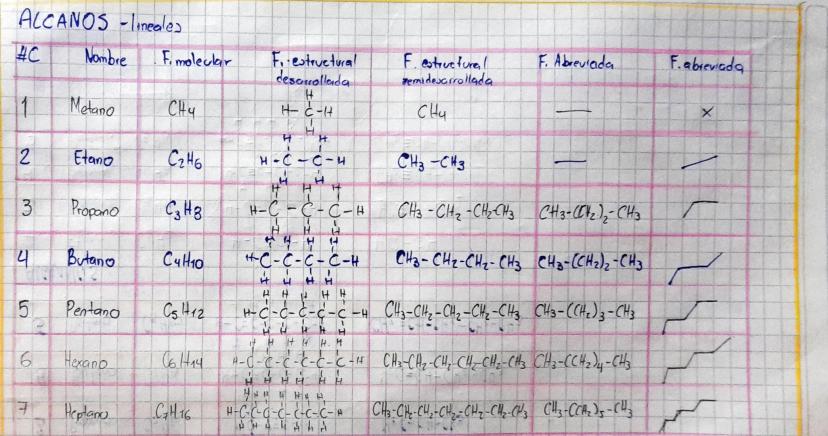 ALCANOS - lineales
#C Nombre F. molecular F. estructural desarrollada F. estructural semidesarrollada F. Abreviada F. abreviada
1 Metano CH4 H H-C-H H CH4 — ×
2 Etano C2H6 H H H-C-C-H H H CH3-CH3 —
3 Propano C3H8 H H H H-C-C-C-H H H H CH3-CH2-CH2CH3 CH3-(CH2)2-CH3
4 Butano C4H10 H H H H H-C-C-C-C-H H H H H CH3-CH2-CH2-CH3 CH3-(CH2)2-CH3
5 Pentano C5H12 H H H H H H-C-C-C-C-C-H H H H H H CH3-CH2-CH2-CH2-CH3 CH3-(CH2)3-CH3
6 Hexano C6H14 H H H H H H H-C-C-C-C-C-C-H H H H H H H CH3-CH2-CH2-CH2-CH2-CH3 CH3-(CH2)4-CH3
7 Heptano C7H16 CH3-CH2-CH2-CH2-CH2-CH2-CH3 CH3-(CH2)5-CH3